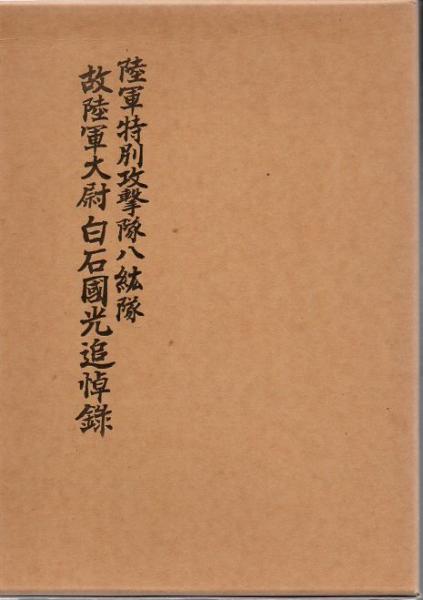 陸軍特別攻撃隊八紘隊
故陸軍大尉白石國光追悼錄